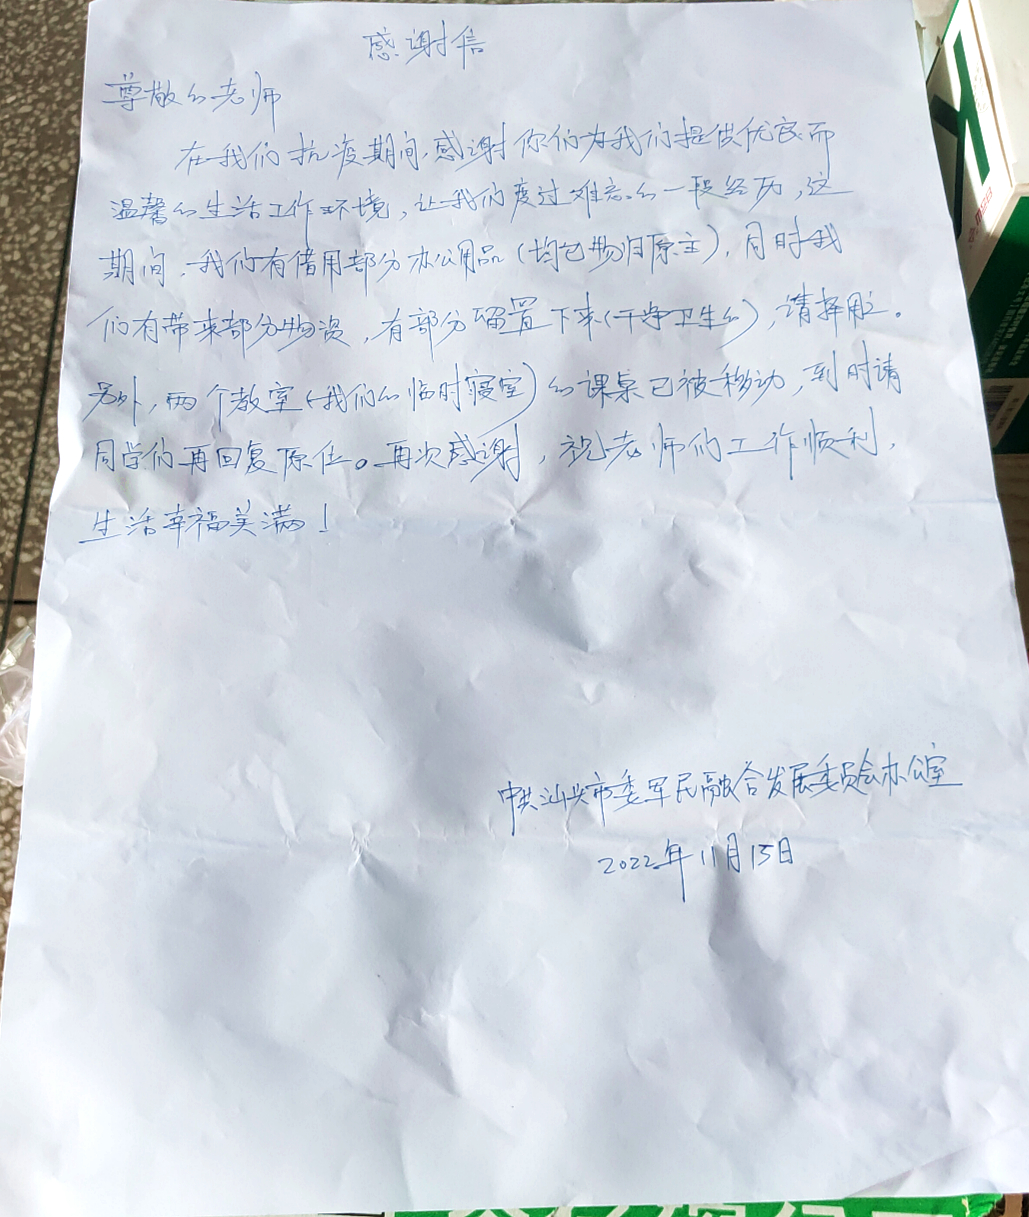 感谢信
尊敬的老师
在我们抗疫期间,感谢你们为我们提供优良而
温馨的生活工作环境,让我们度过难忘的一段经历,这
期间,我们有借用部分办公用品(均已物归原主),同时我
们有带来部分物资,有部分留置下来(干净卫生的),请择用。
另外,两个教室(我们的临时寝室)的课桌已被移动,到时请
同学们再回复原位。再次感谢,祝老师们工作顺利,
生活幸福美满!
中共汕头市委军民融合发展委员会办公室
2022年11月15日